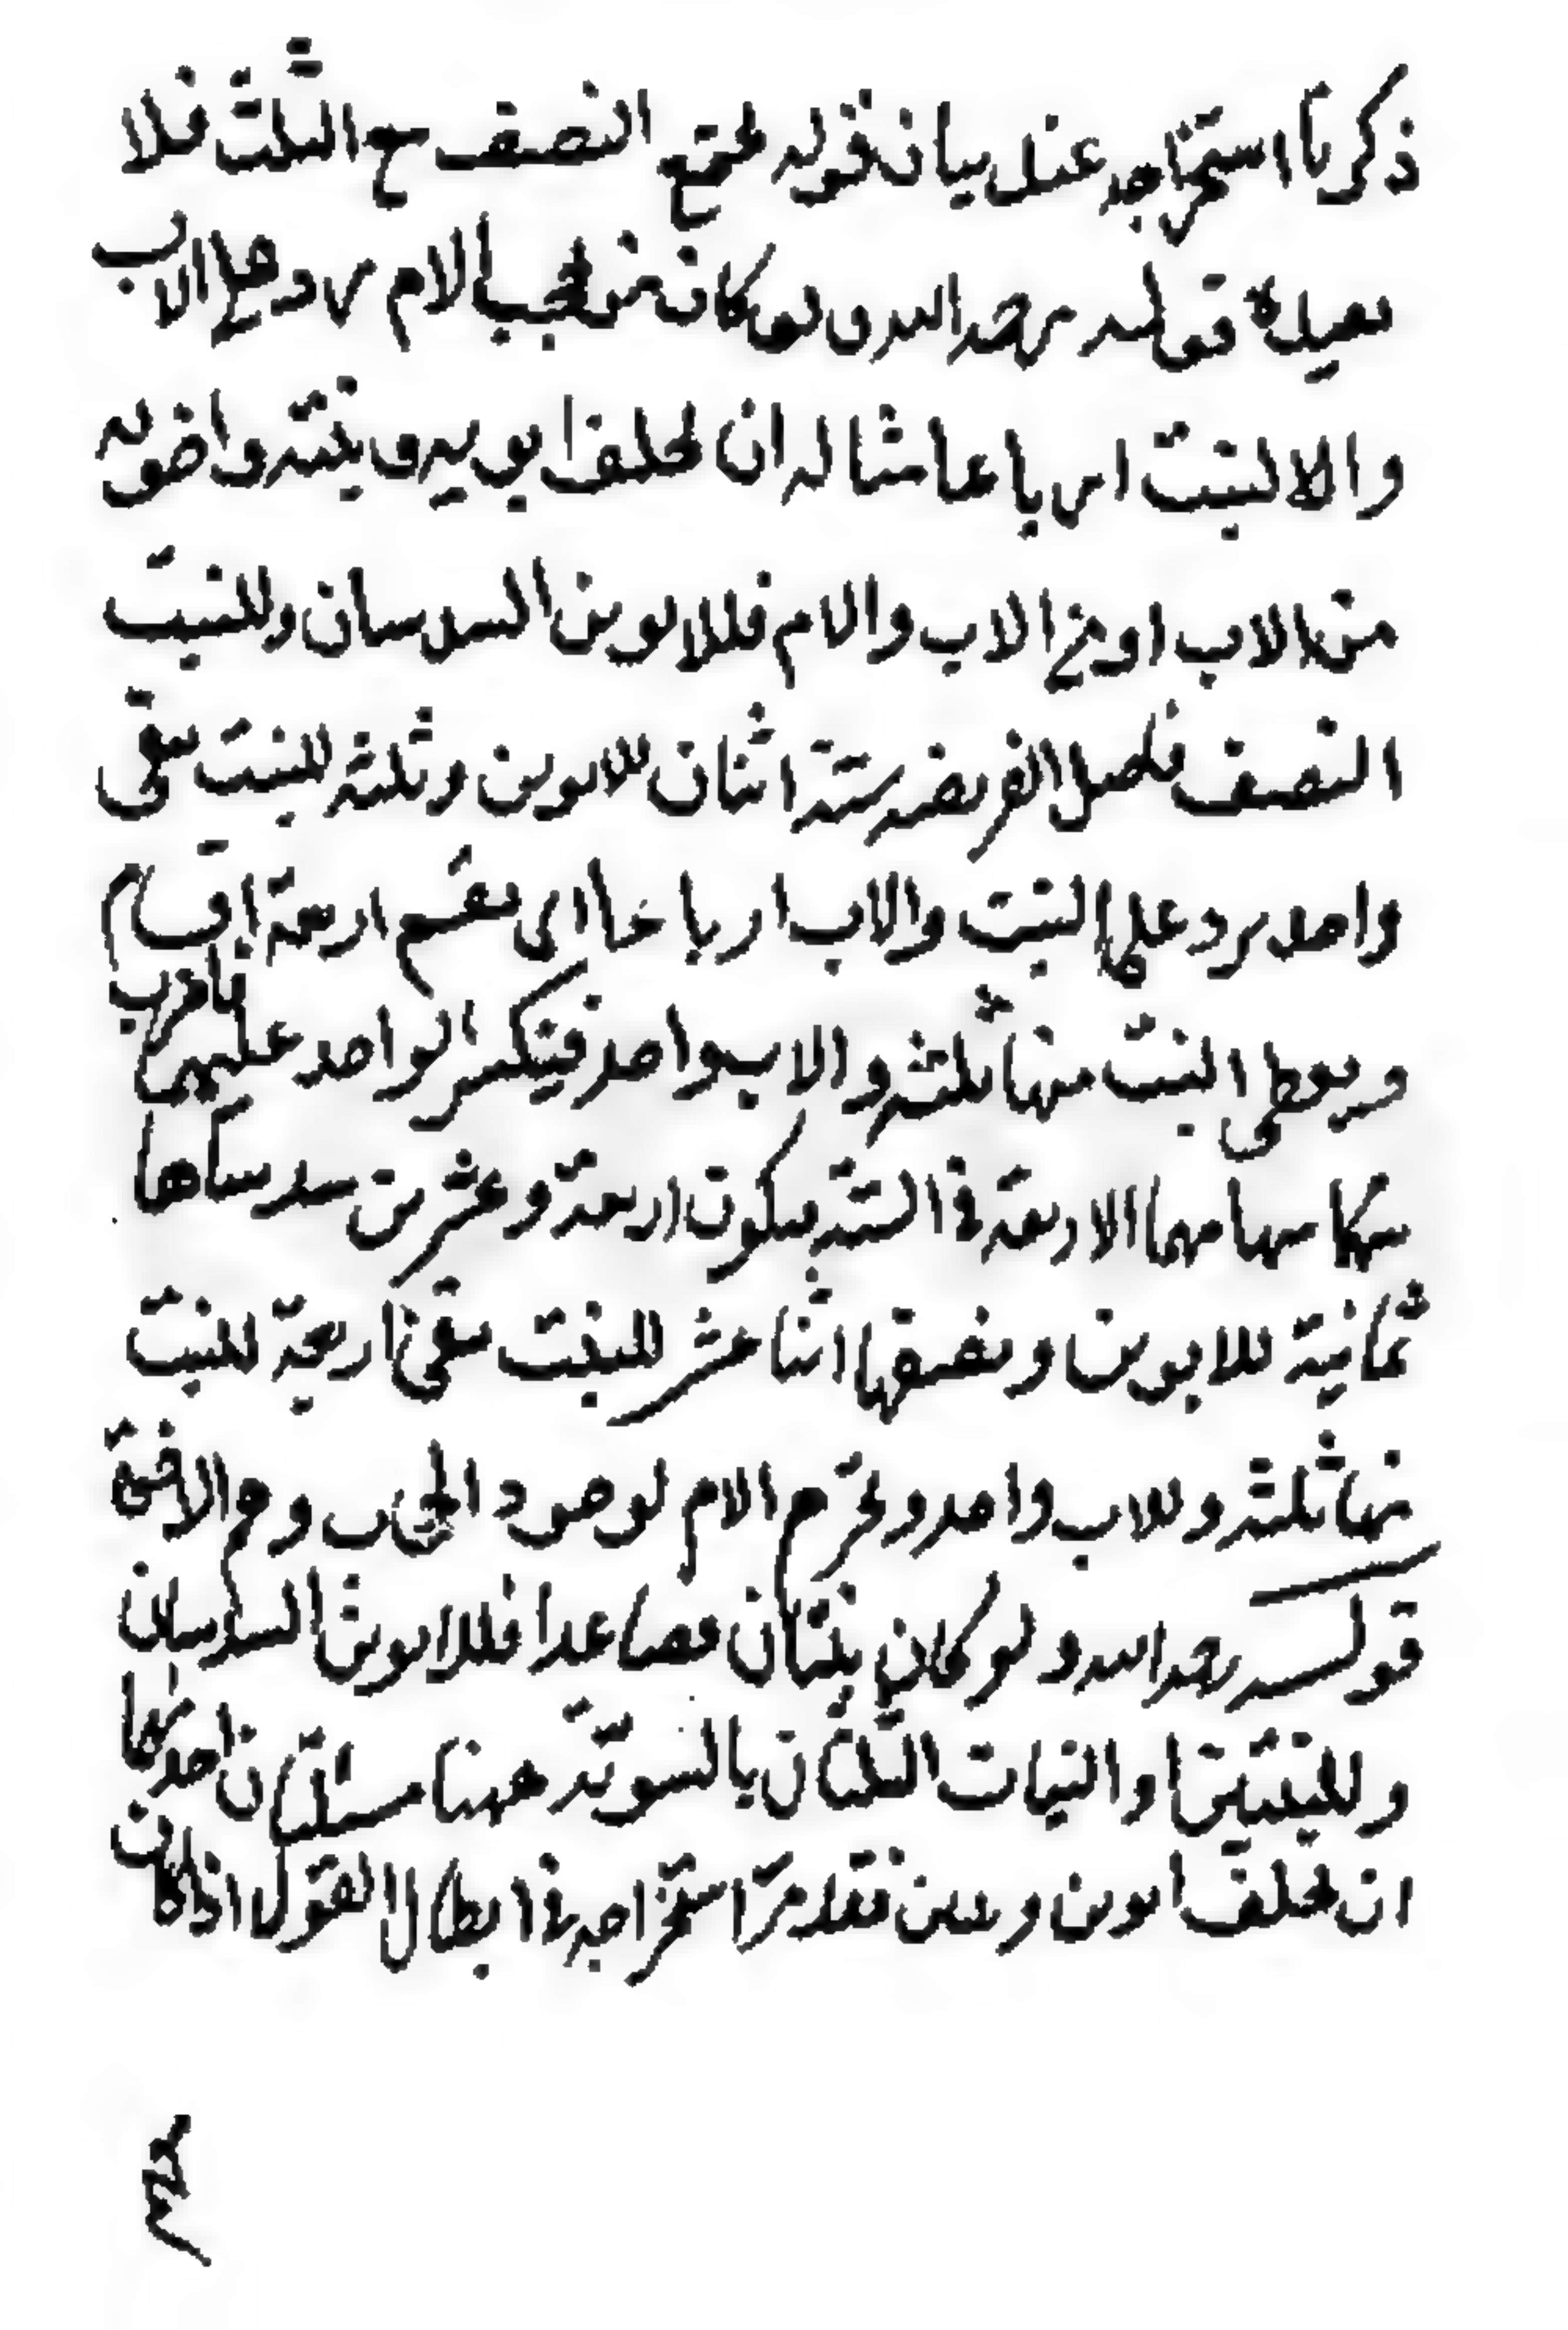 ذكرنا استخراجه عند بيان قوله يجتمع النصف مع الثلث فلا
نعيده قوله رحمه الله ولو كان من يحجب الام رد على الاب
والا لبنت ارباعا مثاله ان يخلف ابويه وبنته واخوته
من الاب او من الاب والام فللابوين السدسان وللبنت
النصف فاصل الفريضه ستة اثنان للابوين وثلثة للبنت يبقى
واحد يرد على البنت والاب ارباعا اى يقسم اربعة اقسام
ويعطى البنت منها ثلثه والاب واحد فينكسر الواحد عليهما فاضرب
سهامهما الاربعة فى الستة يكون اربعة وعشرين سدساها
ثمانية للابوين ونصفها اثنا عشر للبنت يبقى اربعة للبنت
منها ثلثه وللاب واحد وتحرم الام لوجود الحجاب وهم الاخوة
قوله رحمه الله ولو كان بنتان فصاعدا فللابوين السدسان
وللبنتين او البنات الثلثان بالسوية ههنا مسئلتان احدىهما
ان يخلف ابوين وبنتين تقدم استخراجه فى ابطال القول اذا كان